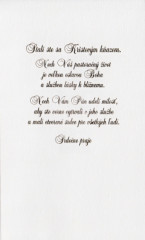 Stali ste sa Kristovým kňazom,
Nech Váš pastoračný život
je veľkou oslavou Boha
a službou lásky k blížnemu.
Nech Vám Pán udelí milosť,
aby ste verne vytrvali v jeho službe
a mali otvorené srdce pre všetkých ľudí.
Srdečne praje